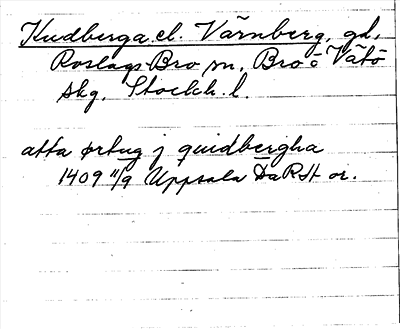 Kudberga el. Värnberg, gd,
Roslags-Bro sn, Bro o Vätö
skg, Stockh. l.
atta ørtug j quidbergha
1409 11/9 Uppsala DaRSt or.